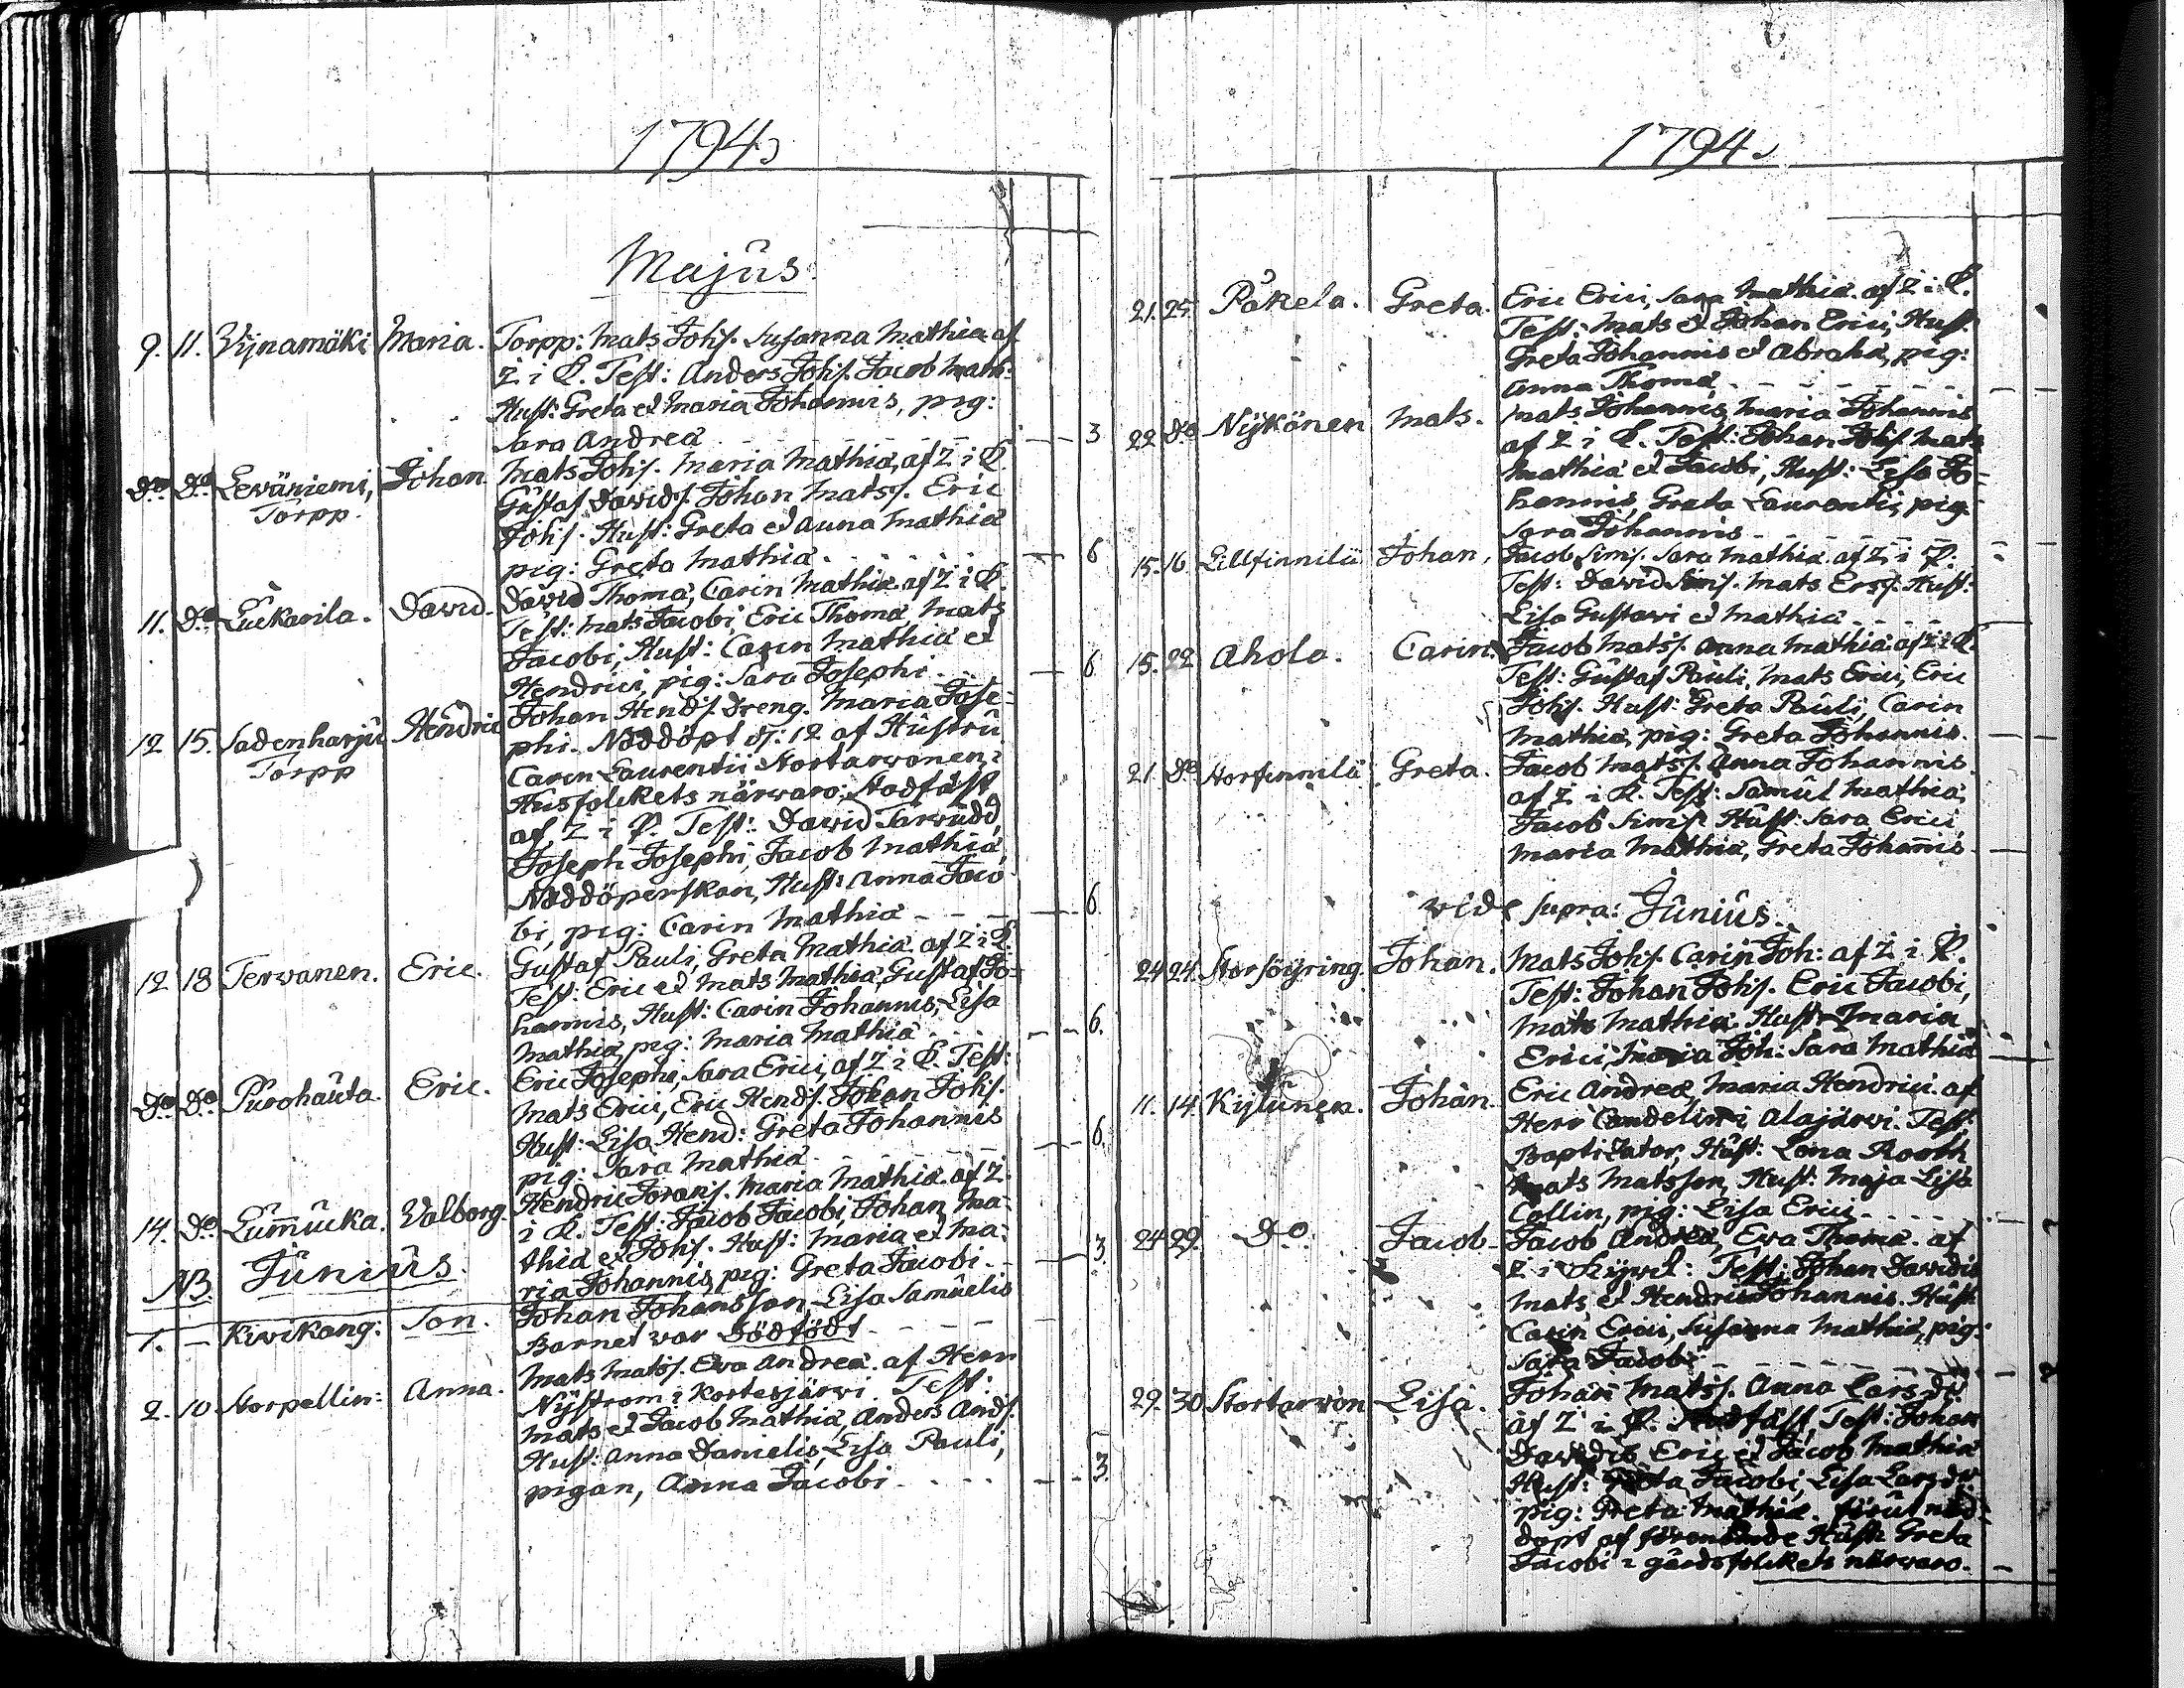 1794
Majus
9. 11. Wijnamäki Maria. Torpp: Mats Johs. Susanna Mathiæ af
Z i L. Test: Anders Johs. Jacob Math:
Hust: Greta et Maria Johannis, pig:
Sara Andreæ 3
Do Do Lewäniemi, Johan. Mats Johs. Maria Mathiæ, af Z i L
Torpp. Gustaf Davids. Johan Matss. Eric
Johs. Hust: Greta et Anna Mathiæ
pig: Greta Mathiæ. 6
11. Do Luckarila. David. David Thomæ, Carin Mathiæ af Z i L
Test: Mats Jacobi, Eric Thomæ, Mats
Jacobi, Hust: Carin Mathiæ et
Hendrici, pig: Sara Josephi. 6
12 15. Sadenharju Hendric Johan Hends. Dreng. Maria Jose-
Torpp phi. Nöddöpt d: 12 af Hustru
Carin Laurentii Stortarwonen i
Husfolckets närwaro; Stadfäst
af Z i L. Test: David Tarwudd,
Joseph Josephi, Jacob Mathiæ,
Nöddöperskan, Hust: Anna Jaco-
bi, pig: Carin Mathiæ 6.
12 18 Terwanen. Eric. Gustaf Pauli, Greta Mathiæ af Z i L.
Test: Eric et Mats Mathiæ, Gustaf Jo-
hannis, Hust: Carin Johannis, Lisa
Mathiæ, pig: Maria Mathiæ 6.
Do Do Purohauta. Eric. Eric Josephi, Sara Erici, af Z i L. Test:
Mats Erici, Eric Hends. Johan Johs.
Hust: Lisa Hend: Greta Johannis
pig: Sara Mathiæ 6.
14. Do Lummucka. Walborg. Hendric Jorans. Maria Mathiæ af Z
i L. Test: Jacob Jacobi, Johan Ma-
thiæ et Johs. Hust: Maria et Ma-
ria Johannis, pig: Greta Jacobi. 3
NB. Junius.
1. – Kivikang: Son. Johan Johansson, Lisa Samuelis
Barnet war Dödfödt
2. 10 Storpellin: Anna. Mats Matss. Eva Andreæ. af Herr
Nyström i Kortesjärwi. Test:
Mats et Jacob Mathiæ, Anders Ands.
Hust: Anna Danielis, Lisa Pauli,
pigan, Anna Jacobi 3.
1794
21. 25 Påkela. Greta. Eric Erici, Sara Mathiæ. af Z i L.
Test: Mats et Johan Erici, Hust.
Greta Johannis et Abrahæ, pig:
Anna Thomæ
22 Do Nykönen Mats. Mats Johannis, Maria Johannis
af Z i L. Test: Johan Johs. Mats
Mathiæ et Jacobi, Hust: Lisa Jo-
hannis, Greta Laurentii, pig.
Sara Johannis
15. 16 Lillfinnilä Johan, Jacob Sims. Sara Mathiæ af Z i L.
Test: David Sims. Mats Erss. Hust:
Lisa Gustavi et Mathiæ
15. 22 Ahola. Carin. Jacob Matss. Anna Mathiæ af Z i L
Test: Gustaf Pauli, Mats Erici, Eric
Johs. Hust: Greta Pauli, Carin
Mathiæ, pig: Greta Johannis.
21. Do Storfinnilä Greta. Jacob Matss. Anna Johannis
af Z i L. Test: Samul Mathiæ,
Jacob Sims. Hust: Sara Erici
Maria Mathiæ, Greta Johannis
vide supra: Junius.
24 24. Storsöyring Johan. Mats Johs. Carin Joh: af Z i L.
Test: Johan Johs. Eric Jacobi,
Mats Mathiæ. Hust: Maria
Erici, Maria Joh: Sara Mathiæ
11. 14. Kylunen. Johan. Eric Andreæ, Maria Hendrici. af
Herr Candelin i Alajärwi. Test:
Baptizator, Hust: Lena Roosh
Mats Matsson, Hust: Maja Lisa
Collin, pig: Lisa Erici
24 29. Do Jacob. Jacob Andreæ, Eva Thomæ. af
Z i Test: Johan Davidis
Mats et Hendric Johannis. Hust
Carin Erici, Susanna Mathiæ, pig:
Sara Jacobi
29. 30 Stortarwon Lisa. Johan Matss. Anna Lars dr
af Z i L. Stadfäst, Test: Johan
Davidis Eric et Jacob Mathiæ
Hust: Greta Jacobi, Lisa Lars dr
pig: Greta Mathiæ. förut nöd-
döpt af förenämde Hust: Greta
Jacobi i gårdsfolckets närwaro.